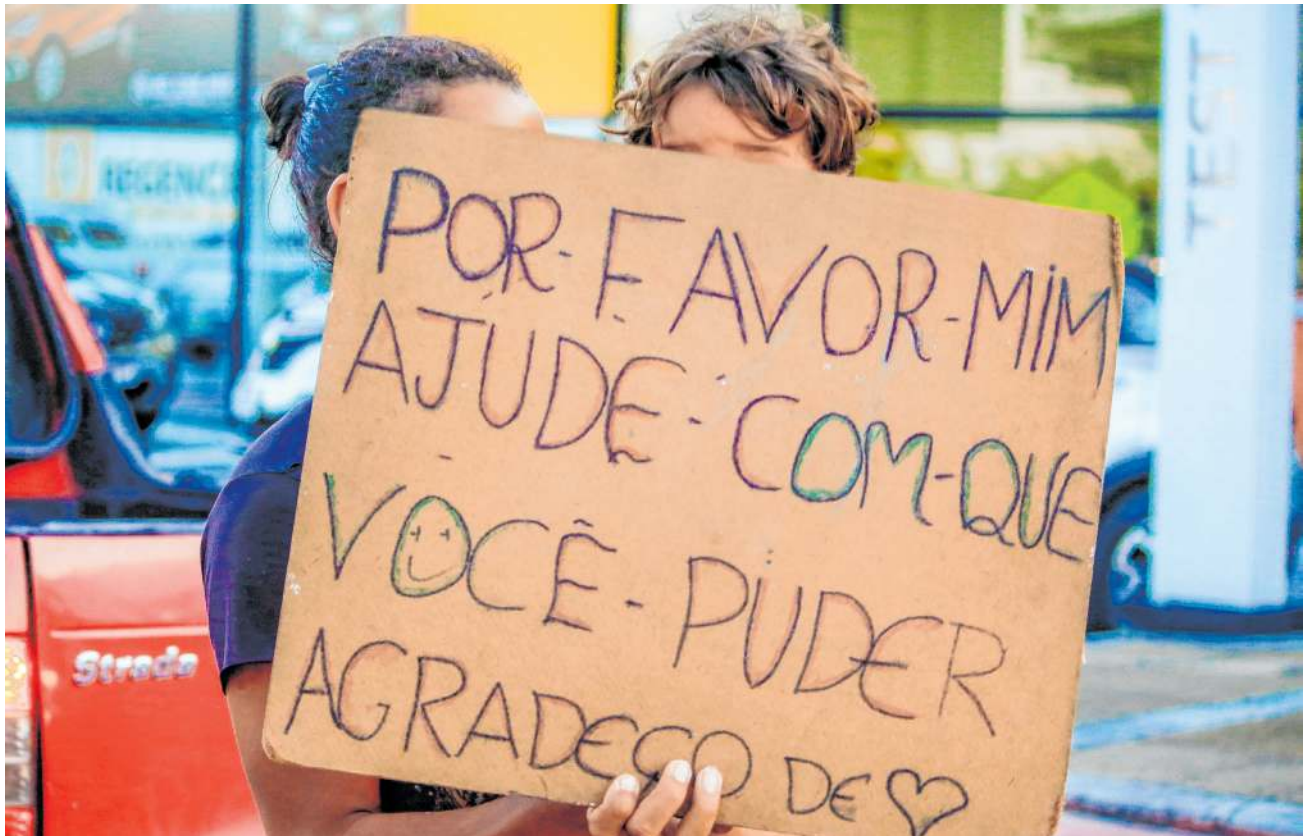 POR-FAVOR-MIM
AJUDE-COM-QUE
VOCÊ-PUDER
AGRADEÇO DE
Strada
TEST